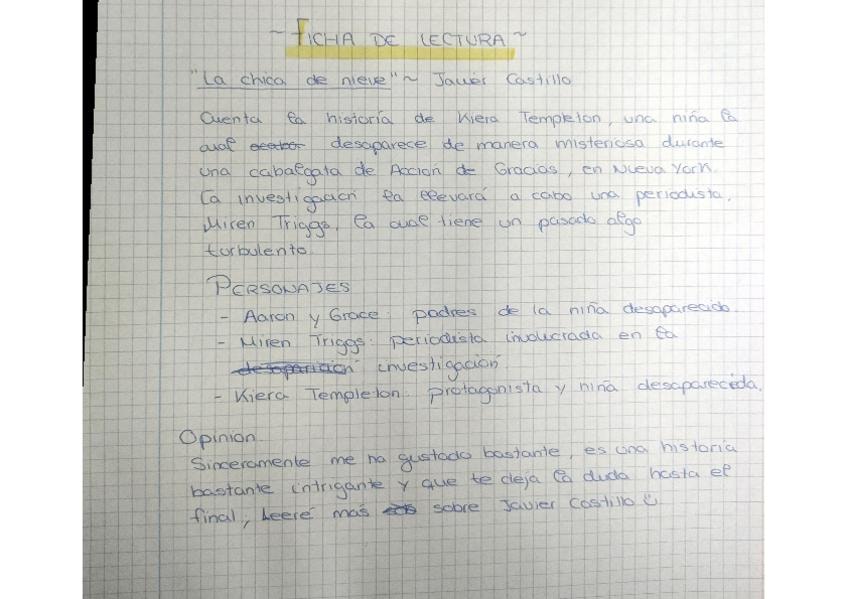 ~ FICHA DE LECTURA ~
"La chica de nieve" ~ Javier Castillo
Cuenta la historia de Kiera Templeton, una niña la
cual desaparece de manera misteriosa durante
una cabalgata de Acción de Gracias, en Nueva York.
La investigación la llevará a cabo una periodista,
Miren Triggs, la cual tiene un pasado algo
turbulento.
PERSONAJES
- Aaron y Grace: padres de la niña desaparecida.
- Miren Triggs: periodista involucrada en la
desaparición investigación.
- Kiera Templeton: protagonista y niña desaparecida.
Opinión
Sinceramente me ha gustado bastante, es una historia
bastante intrigante y que te deja la duda hasta el
final, Leeré más sobre Javier Castillo